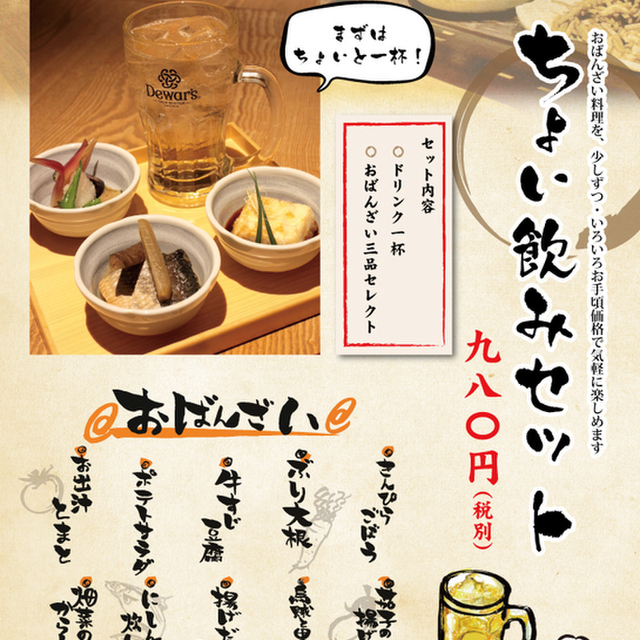 まずは
ちょいと一杯！
おばんざい料理を、少しずつ・いろいろお手頃価格で気軽に楽しめます
ちょい飲みセット
九八〇円(税別)
セット内容
○ドリンク一杯
○おばんざい三品セレクト
Dewar's
おばんざい
きんぴら
ごぼう
ぶり大根
牛すじ
豆腐
ポテトサラダ
お出汁
とまと
茄子の
揚げ
揚げ
にしん
畑菜の
から